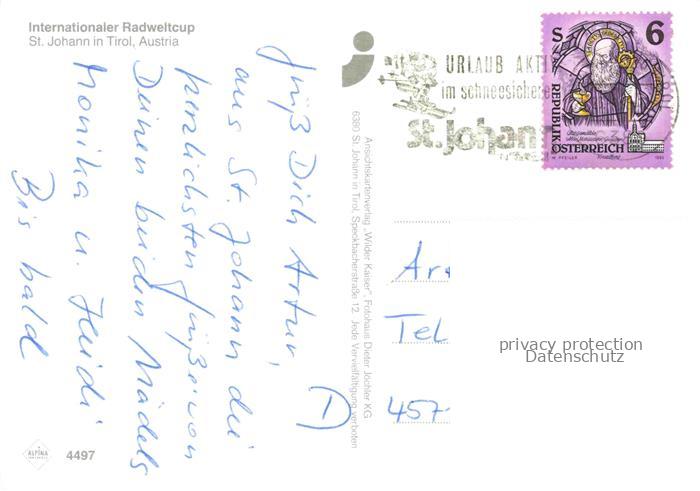 Internationaler Radweltcup
St. Johann in Tirol, Austria
Grüß Dich Artur,
aus St. Johann die
herzlichsten Grüße von
Deinen beiden Mädels
Monika u. Heidi
Bis bald
ALPINA
4497
Ansichtskartenverlag „Wilder Kaiser“, Fotohaus Dieter Jöchler KG
6380 St. Johann in Tirol, Speckbacherstraße 12. Jede Vervielfältigung verboten
URLAUB AKTI
im schneesichere
St. Johan
S 6
REPUBLIK
ÖSTERREICH
Ar
Tel
D
457
privacy protection
Datenschutz